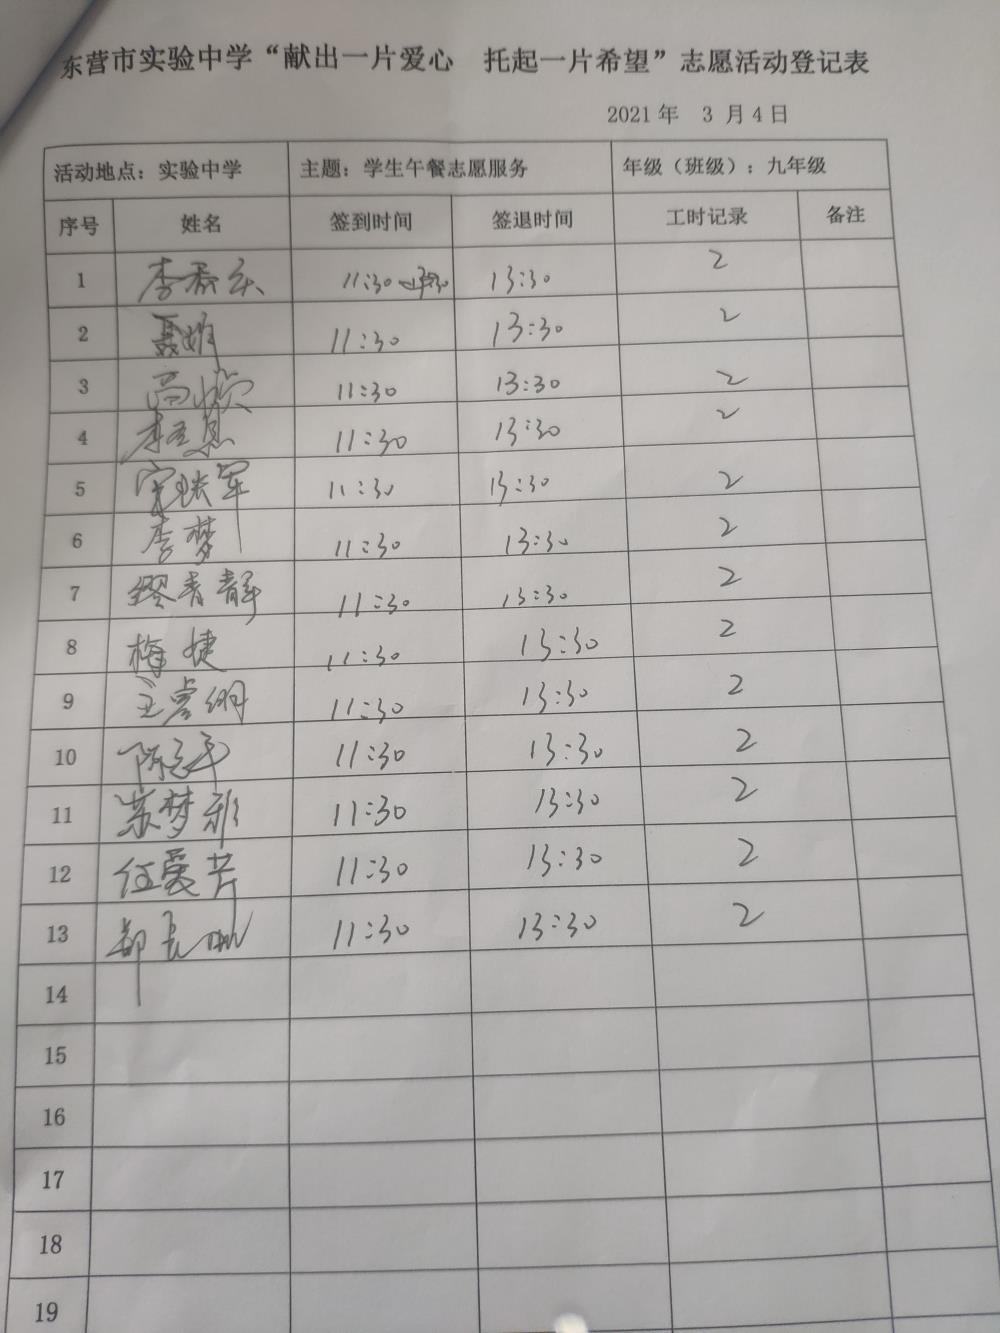 东营市实验中学“献出一片爱心 托起一片希望”志愿活动登记表
2021 年 3 月 4 日
活动地点：实验中学 主题：学生午餐志愿服务 年级（班级）：九年级
序号 姓名 签到时间 签退时间 工时记录 备注
1 11:30 13:30 2
2 聂娟 11:30 13:30 2
3 高 11:30 13:30 2
4 李 11:30 13:30 2
5 宋铁军 11:30 13:30 2
6 李梦 11:30 13:30 2
7 缪青静 11:30 13:30 2
8 梅婕 11:30 13:30 2
9 王 11:30 13:30 2
10 陈 11:30 13:30 2
11 苏梦彩 11:30 13:30 2
12 任爱芹 11:30 13:30 2
13 11:30 13:30 2
14
15
16
17
18
19